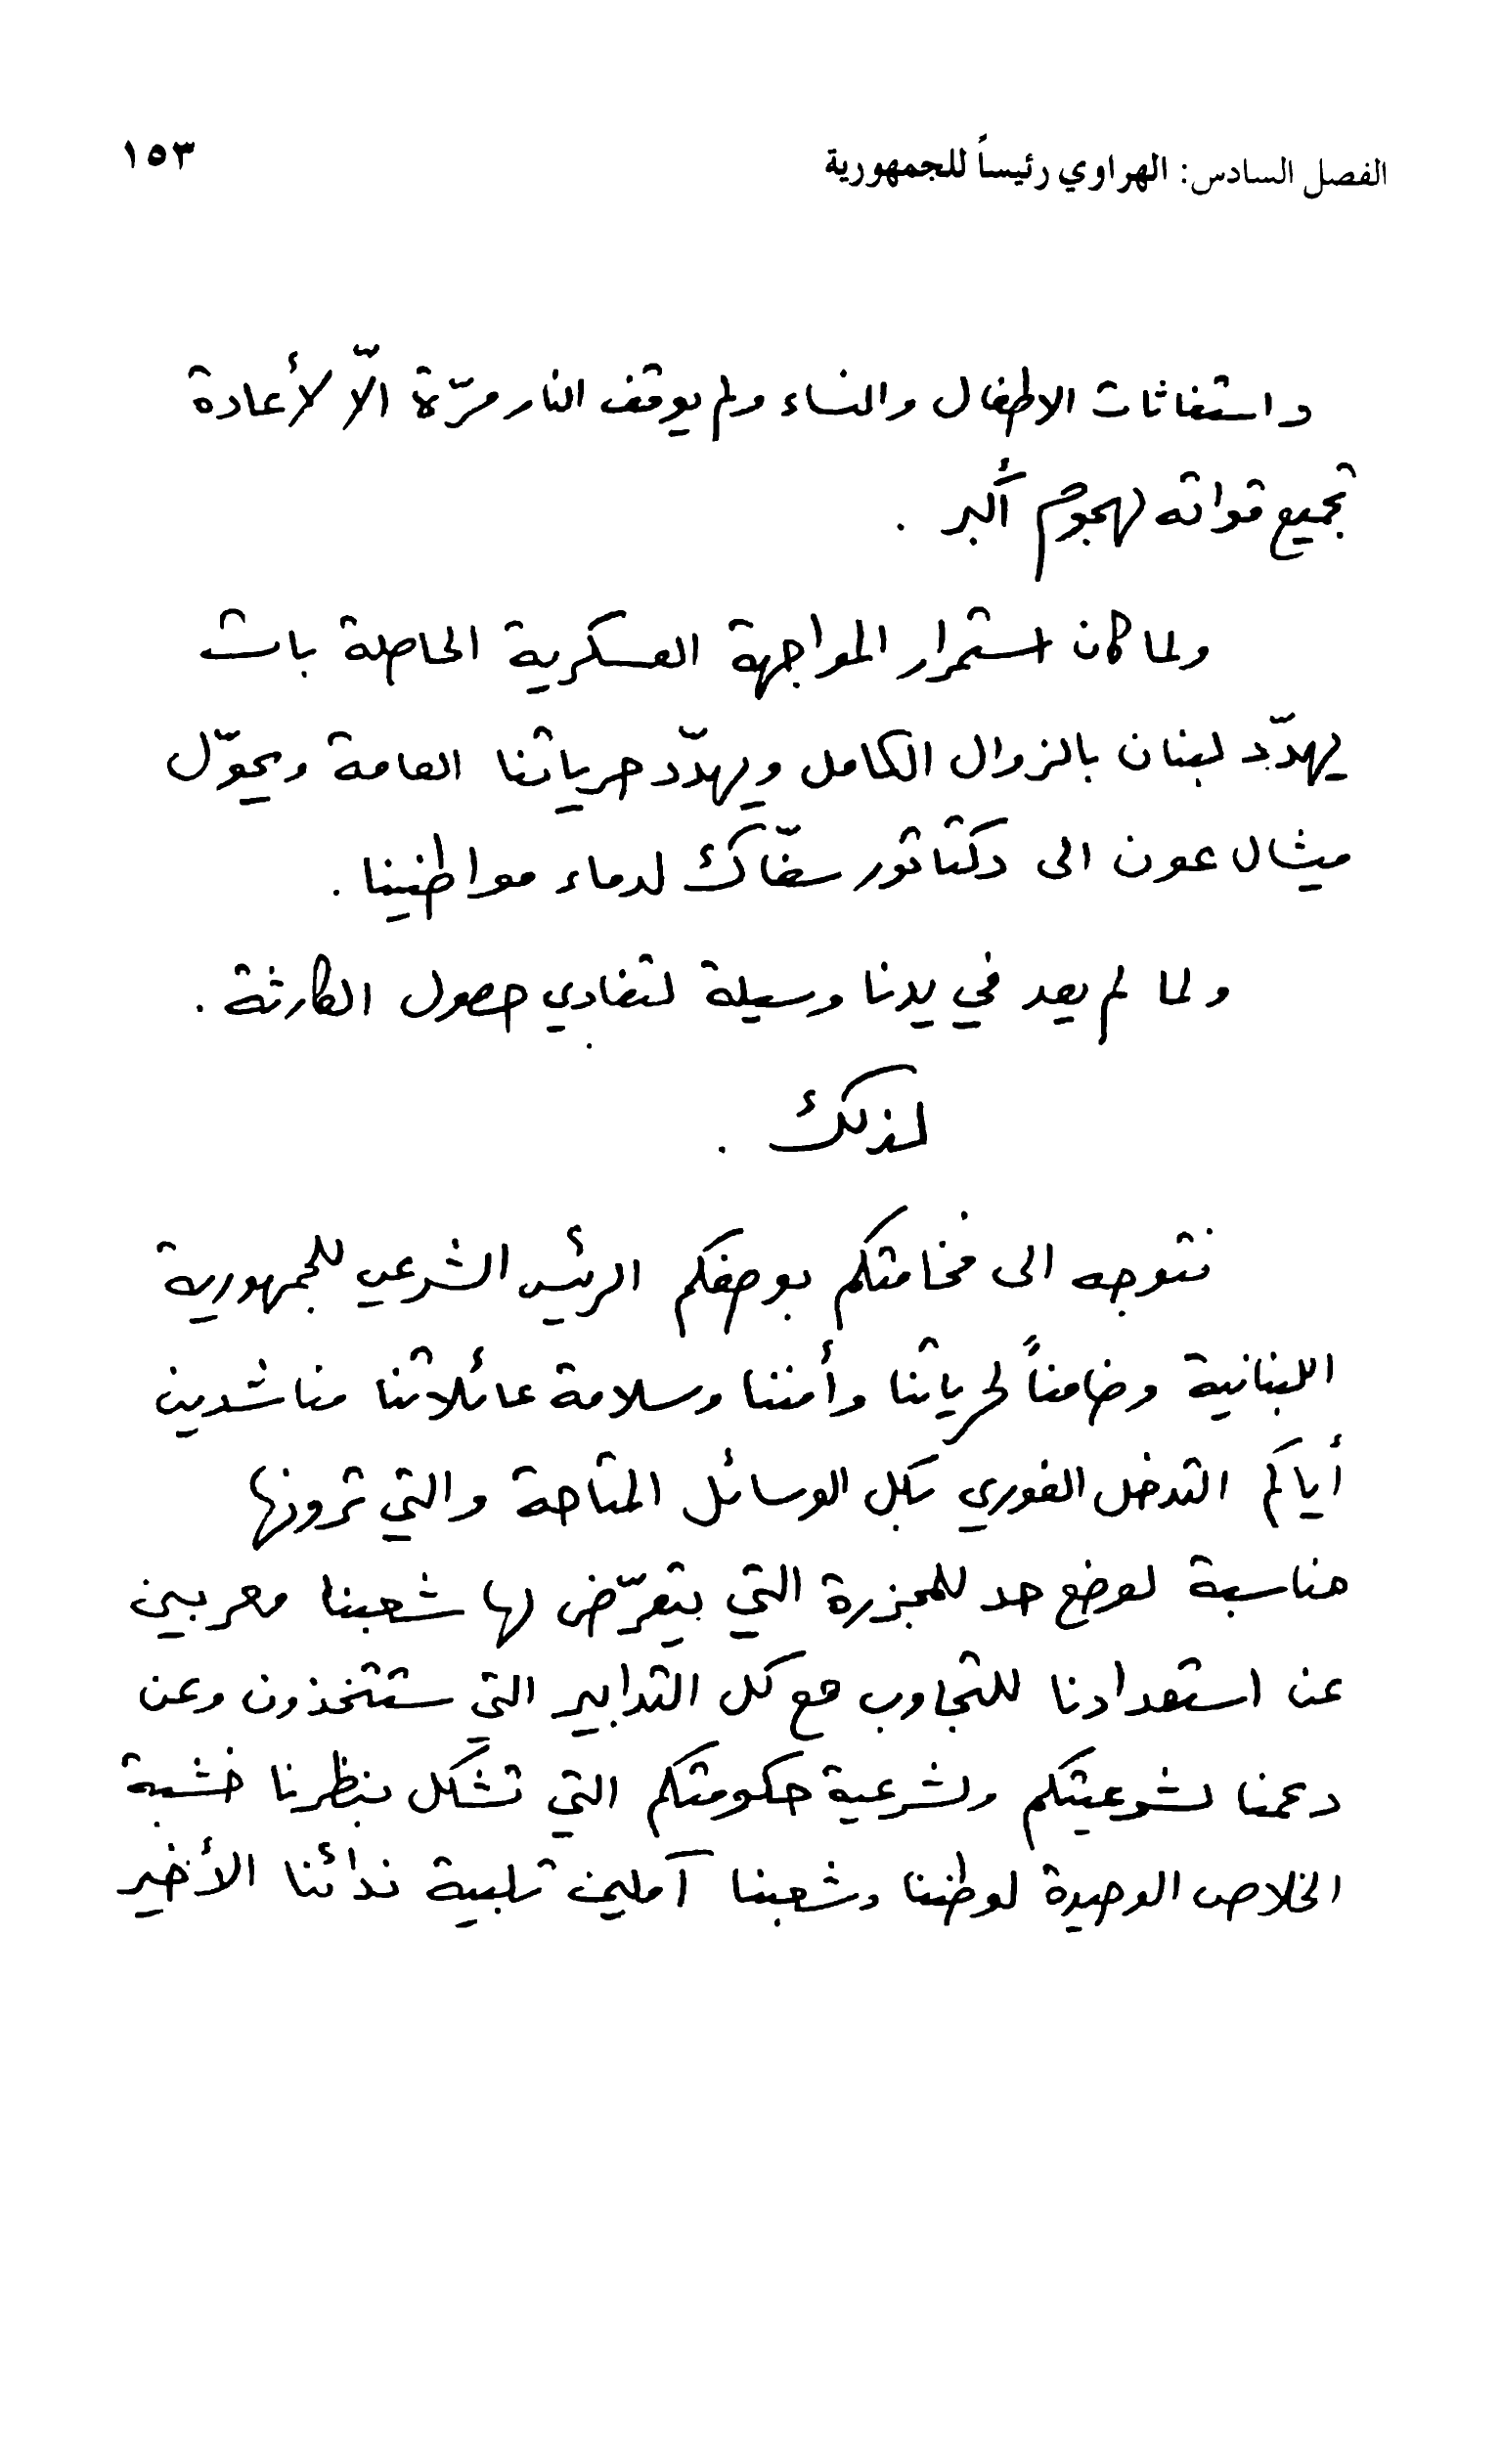 الفصل السادس: الهراوي رئيساً للجمهورية ١٥٣
واستغاثات الاطفال والنساء ولم يوقف النار مرّة الّا لأعادة
تجميع قواته لهجوم أكبر .
ولما كان استمرار المواجهة العسكرية الحاصلة بات
يهدّد لبنان بالزوال الكامل ويهدّد حرياتنا العامة ويحوّل
ميشال عون الى دكتاتور سفّاك لدماء مواطنينا .
ولما لم يعد في يدنا وسيلة لتفادي حصول الكارثة .
لذلك .
نتوجه الى فخامتكم بوصفكم الرئيس الشرعي للجمهورية
اللبنانية وضامناً لحرياتنا وأمننا وسلامة عائلاتنا مناشدين
أياكم التدخل الفوري بكل الوسائل المتاحة والتي ترونها
مناسبة لوضع حد للمجزرة التي يتعرّض لها شعبنا معربين
عن استعدادنا للتجاوب مع كل التدابير التي ستتخذون وعن
دعمنا لشرعيتكم ولشرعية حكومتكم التي تشكل بنظرنا خشبة
الخلاص الوحيدة لوطننا وشعبنا آملين تلبية ندائنا الأخير